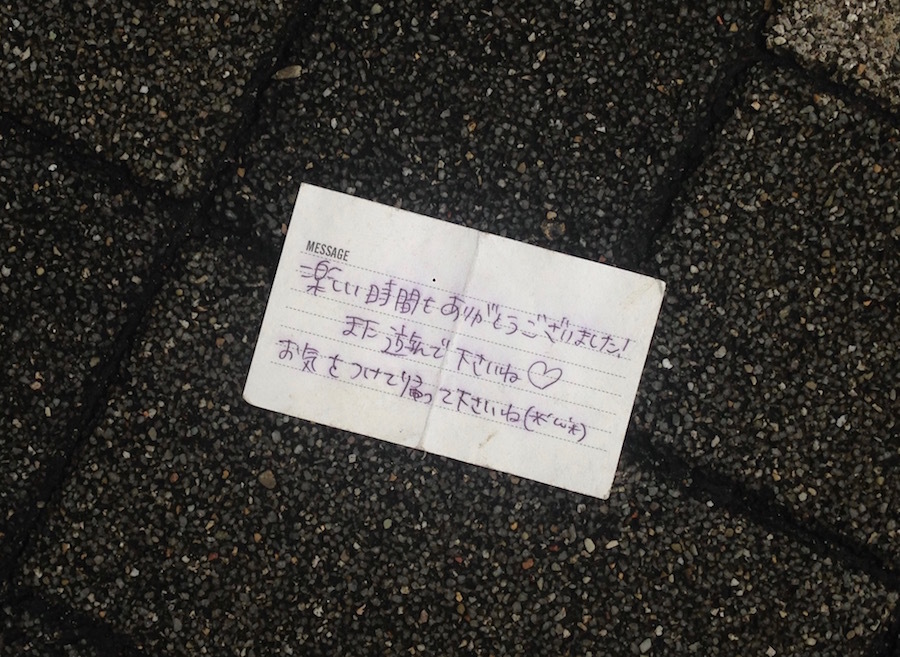 MESSAGE
楽しい時間をありがとうございました!
また遊んで下さいね♡
お気をつけて帰って下さいね(*´ω`*)